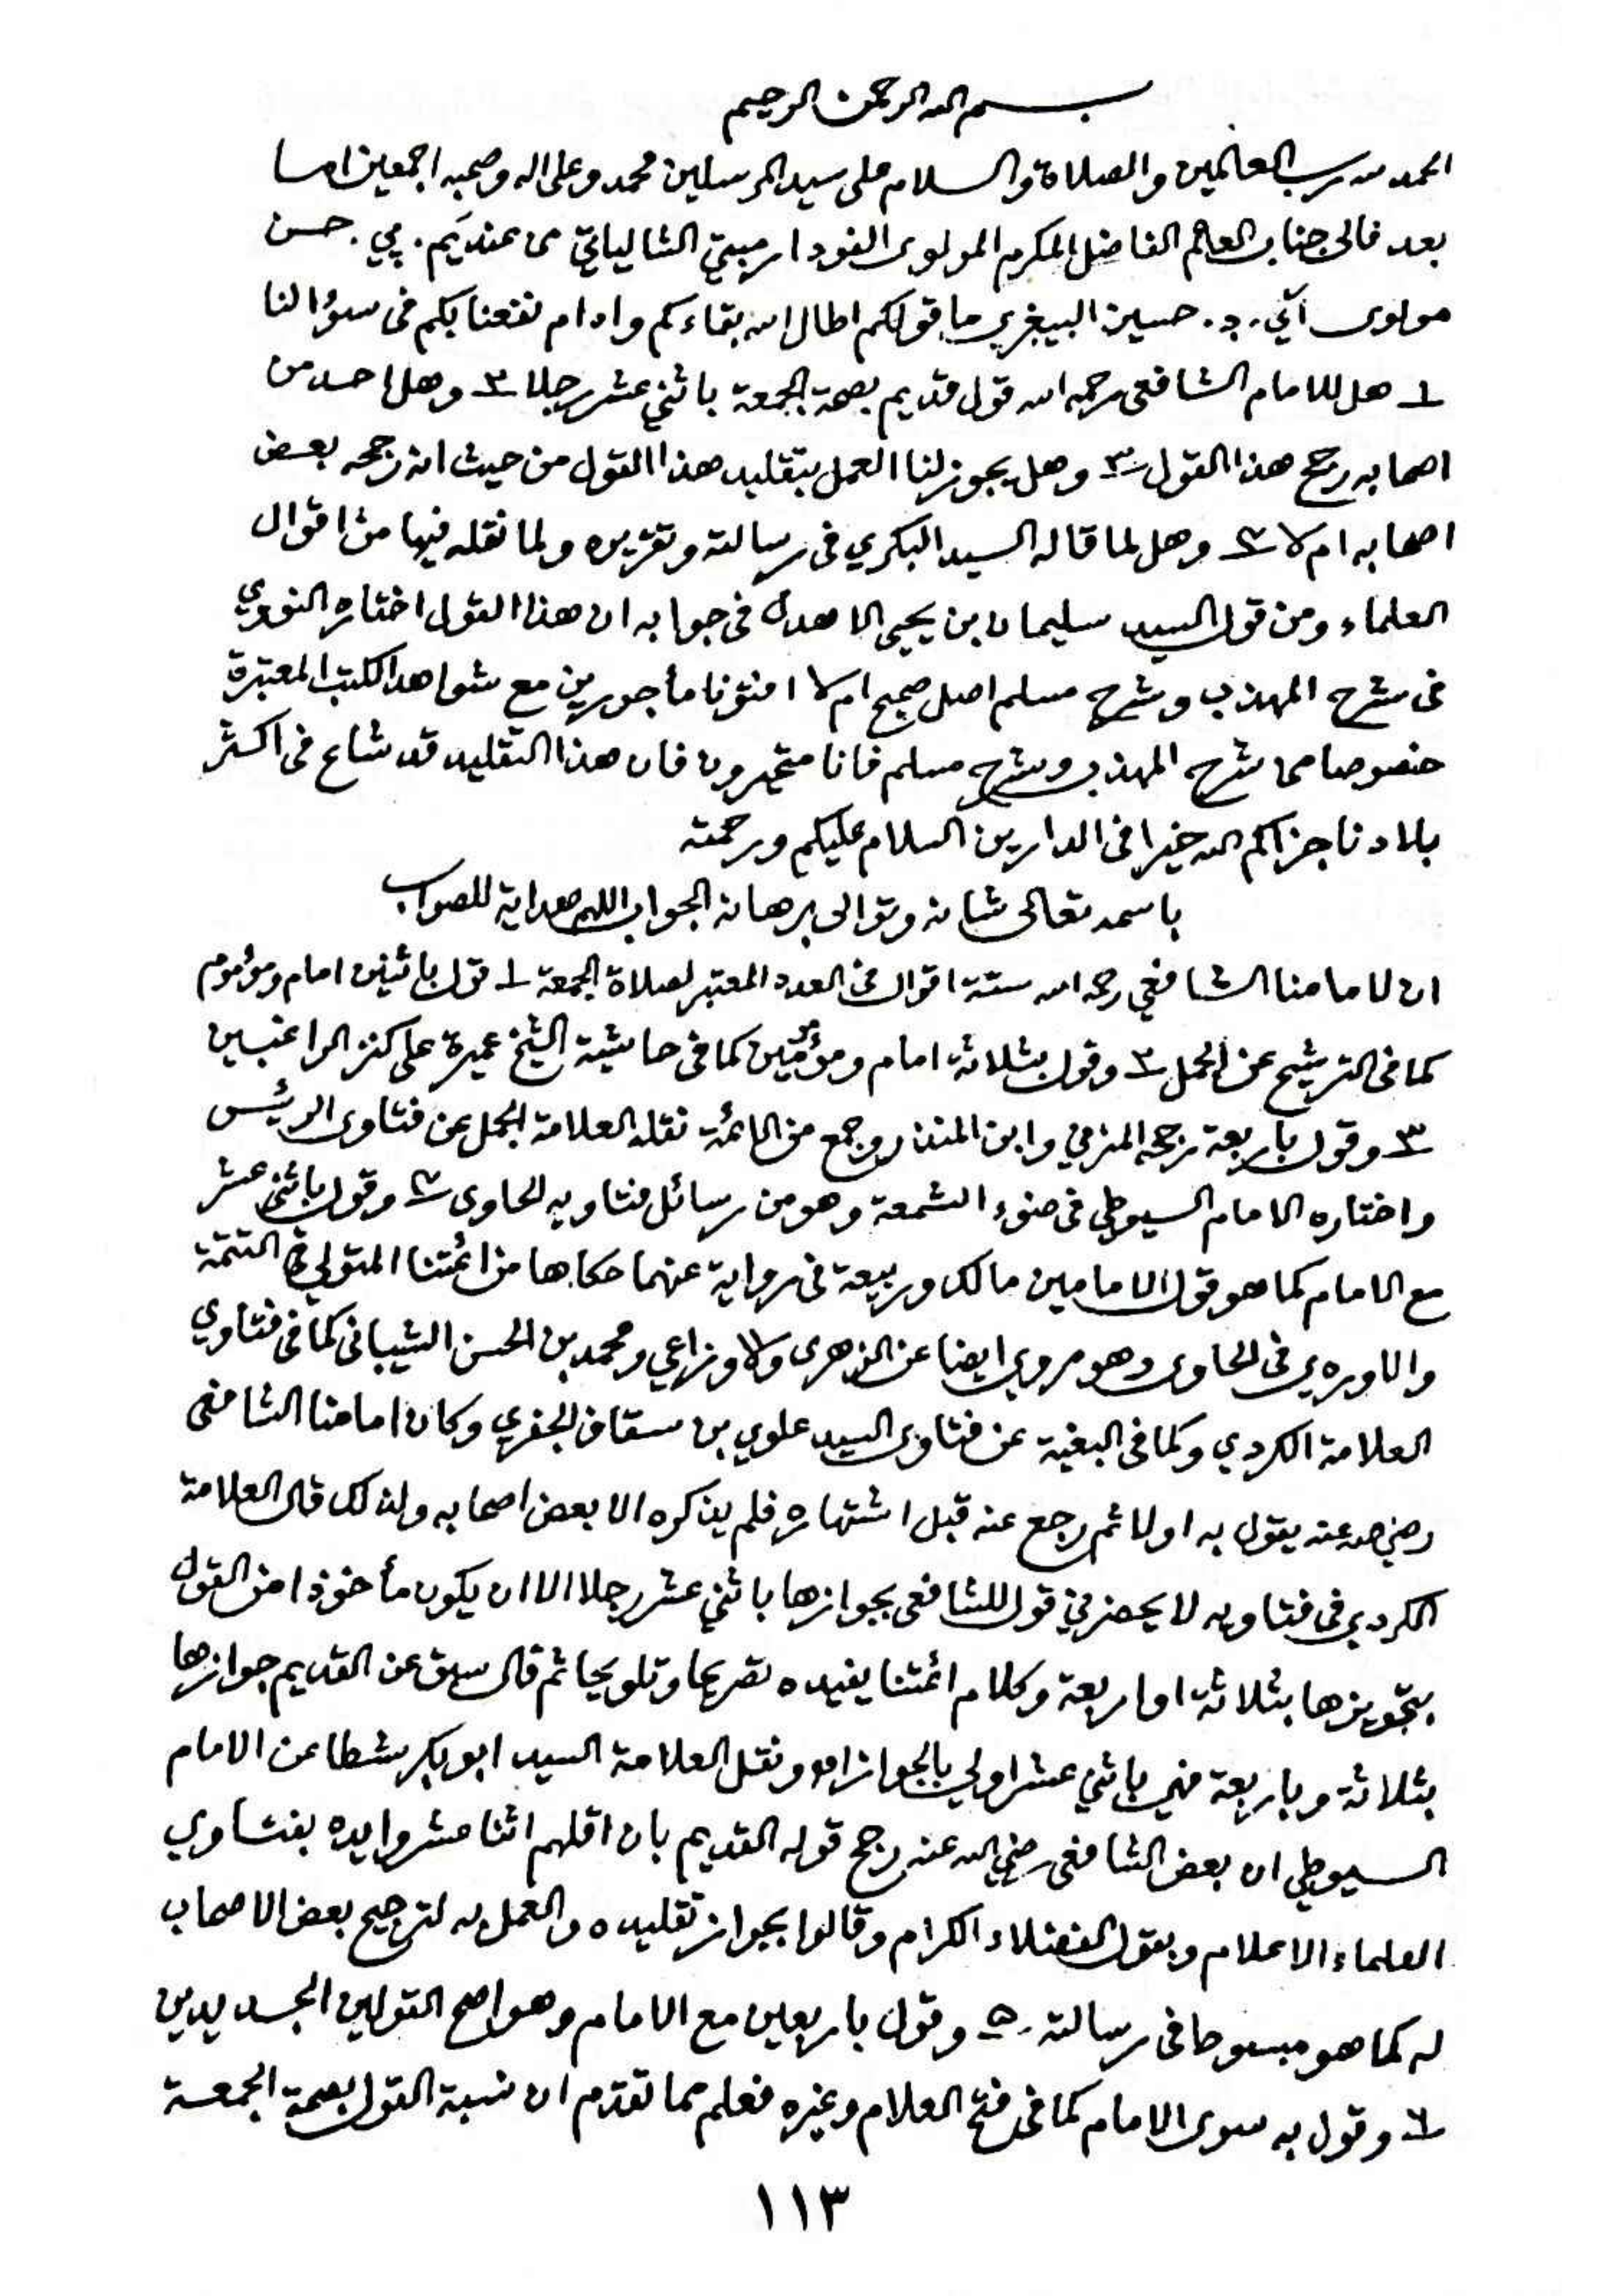 بسم الله الرحمن الرحيم
الحمد لله رب العالمين والصلاة والسلام على سيد المرسلين محمد وعلى اله وصحبه اجمعين اما
بعد فالى جناب العالم الفاضل المكرم المولوى الشالياتي من عند يَم. پي. حسن
مولوى آئي. د. حسين ما قولكم اطال الله بقاءكم وادام نفعنا بكم فى سوؤالنا
١ هل للامام الشافعى رحمه الله قول قديم بصحة الجمعة باثني عشر رجلا ٢ وهل احد من
اصحابه رجح هذا القول ٣ وهل يجوز لنا العمل بتقليد هذا القول من حيث انه رجحه بعض
اصحابه ام لا ٤ وهل لما قاله السيد البكري فى رسالته وتقريره ولما نقله فيها من اقوال
العلماء ومن قول السيد سليمان بن يحيى الاهدل فى جوابه ان هذا القول اختاره النووي
فى شرح المهذب وشرح مسلم اصل صحيح ام لا افتؤنا مأجورين مع شواهد الكتب المعتبرة
خصوصا مما شرح المهذب وشرح مسلم فانا متحيرون فان هذا التقليد قد شاع فى اكثر
بلادنا جزاكم الله خيرا فى الدارين السلام عليكم ورحمته
باسمه تعالى شانه وتوالى برهانه الجواب اللهم هداية للصواب
ان لامامنا الشافعي رحمه الله ستة اقوال فى العدد المعتبر لصلاة الجمعة ١ قول باثنين امام ومؤموم
كما فى الترشيح عن الجمل ٢ وقول بثلاثة امام ومؤمومين كما فى حاشية الشيخ عميرة على كنز الراغبين
٣ وقول بأربعة رجحه المزني وابن المنذر وجمع من الائمة نقله العلامة الجمل عن فتاوى الرئيس
واختاره الامام السيوطي فى ضوء الشمعة وهو من رسائل فتاويه الحاوى ٤ وقول باثنى عشر
مع الامام كما هو قول الامامين مالك وربيعة فى رواية عنهما حكاها من ائمتنا المتولي فى التتمة
والماوردي فى الحاوى وهو مروي ايضا عن الزهرى والاوزاعي ومحمد بن الحسن الشيبانى كما فى فتاوي
العلامة الكردي وكما فى البغية عن فتاوى السيد علوي بن سقاف الجفري وكان امامنا الشافعى
رضي الله عنه يقول به اولا ثم رجع عنه قبل اشتهاره فلم يذكره الا بعض اصحابه ولذلك قال العلامة
الكردي فى فتاويه لا يحضرني قول للشافعى بجوازها باثني عشر رجلا الا ان يكون مأخوذا من القول
بتجويزها بثلاثة او اربعة وكلام ائمتنا يفيده تصريحا وتلويحا ثم قال سبق عن القديم جوازها
بثلاثة وباربعة فهي باثني عشر اولي بالجواز اهـ ونقل العلامة السيد ابو بكر شطا عن الامام
السيوطي ان بعض الشافعى رضي الله عنه رجح قوله القديم بان اقلهم اثنا عشر وايده بفتاوي
العلماء الاعلام وبقول الفضلاء الكرام وقالوا بجواز تقليده والعمل به لترجيح بعض الاصحاب
له كما هو مبسوطا فى رسالته. ٥ وقول باربعين مع الامام وهو اصح القولين الجديدين
٦ وقول به سوى الامام كما فى فتح العلام وغيره فعلم مما تقدم ان نسبة القول بصحة الجمعة
١١٣